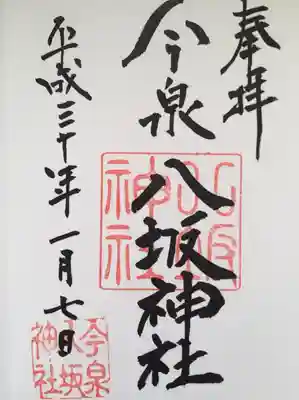 奉拝
今泉
八坂神社
平成三十年一月七日
八坂神社
今泉八坂神社